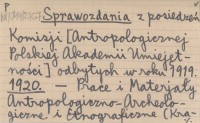 P
Sprawozdania z posiedzeń
Komisji [Antropologicznej
Polskiej Akademii Umiejęt-
ności] odbytych w roku 1919.
1920. — Prace i Materjały
Antropologiczno-Archeolo-
giczne i Etnograficzne (Kra-